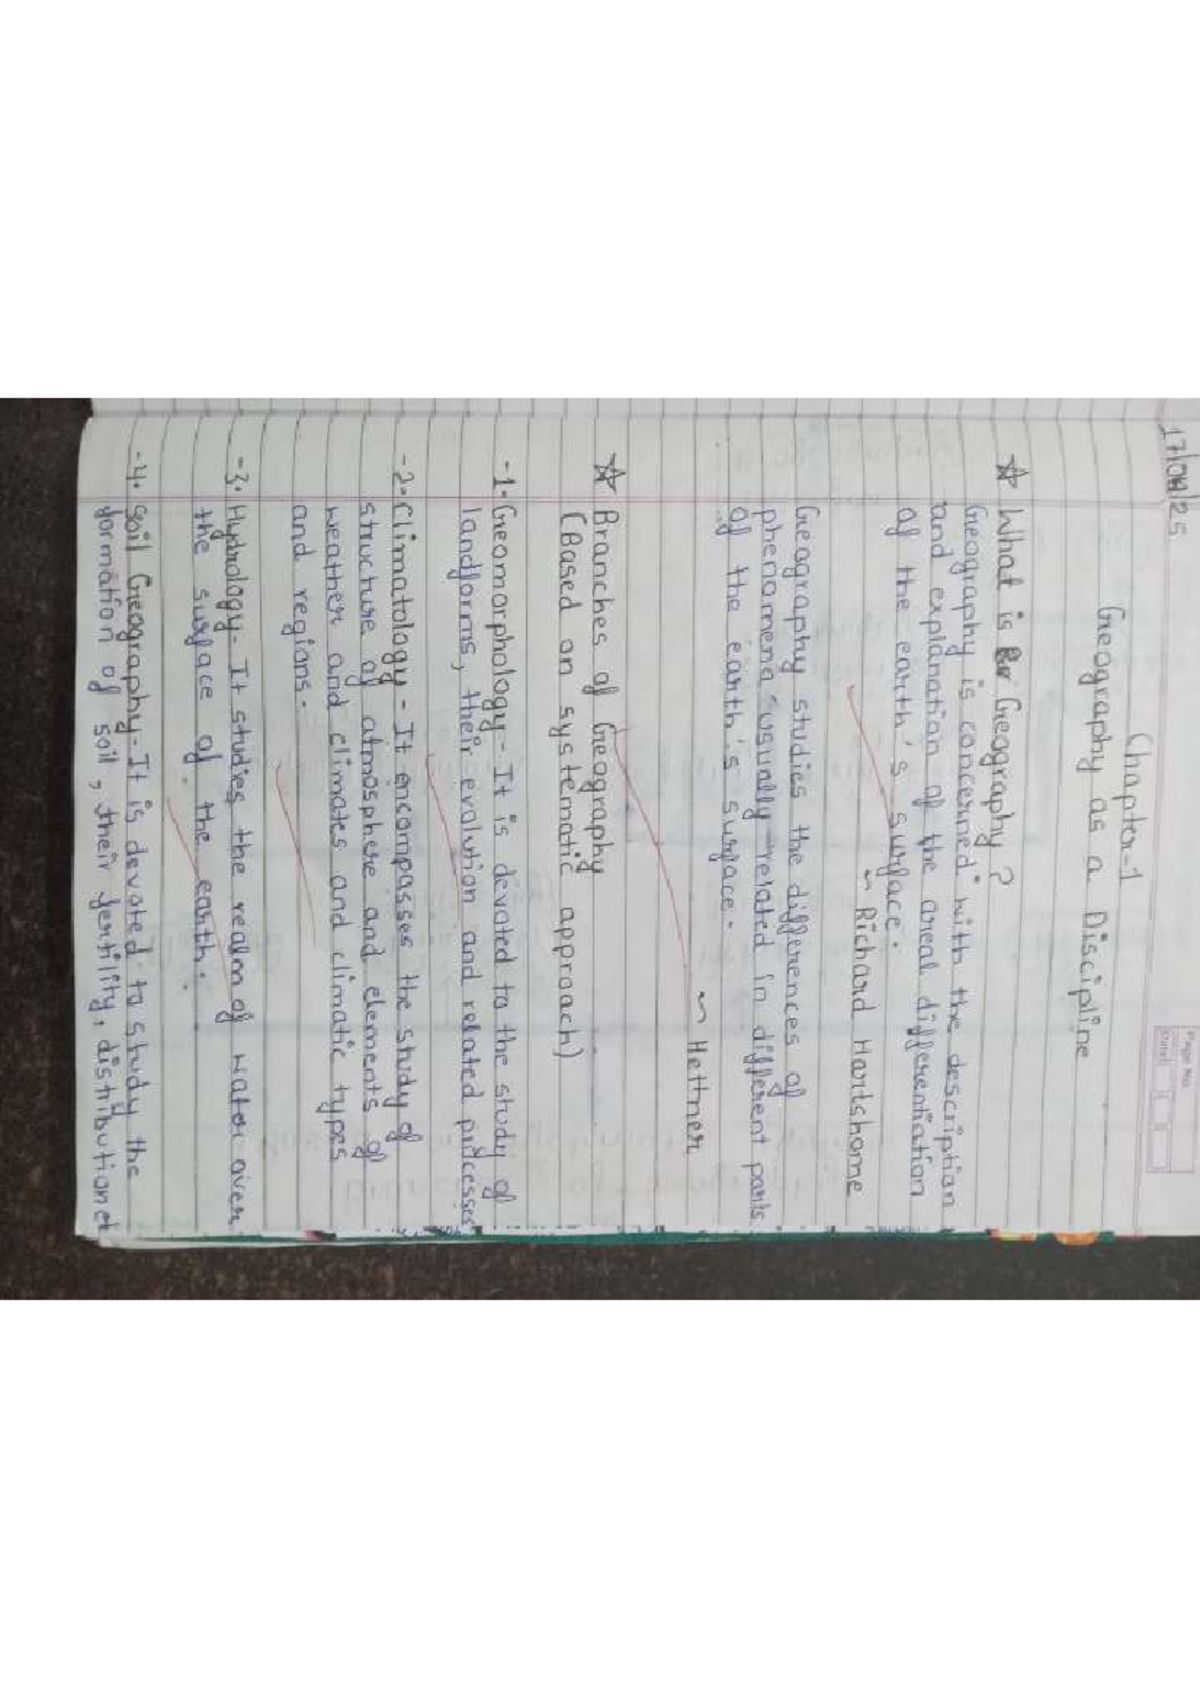 17/04/25
Page No
Date
Chapter-1
Geography as a Discipline
☆ What is Geography?
Geography is concerned with the description
and explanation of the areal differentiation
of the earth's surface.
~ Richard Hartshome
Geography studies the differences of
phenomena usually related in different parts
of the earth's surface.
~ Hettner
☆ Branches of Geography
(Based on systematic approach)
-1. Geomorphology- It is devoted to the study of
landforms, their evolution and related processes
-2. Climatology - It encompasses the study of
structure of atmosphere and elements of
weather and climates and climatic types
and regions.
-3. Hydrology- It studies the realm of water over
the surface of the earth.
-4. Soil Geography- It is devoted to study the
formation of soil, their fertility, distribution et